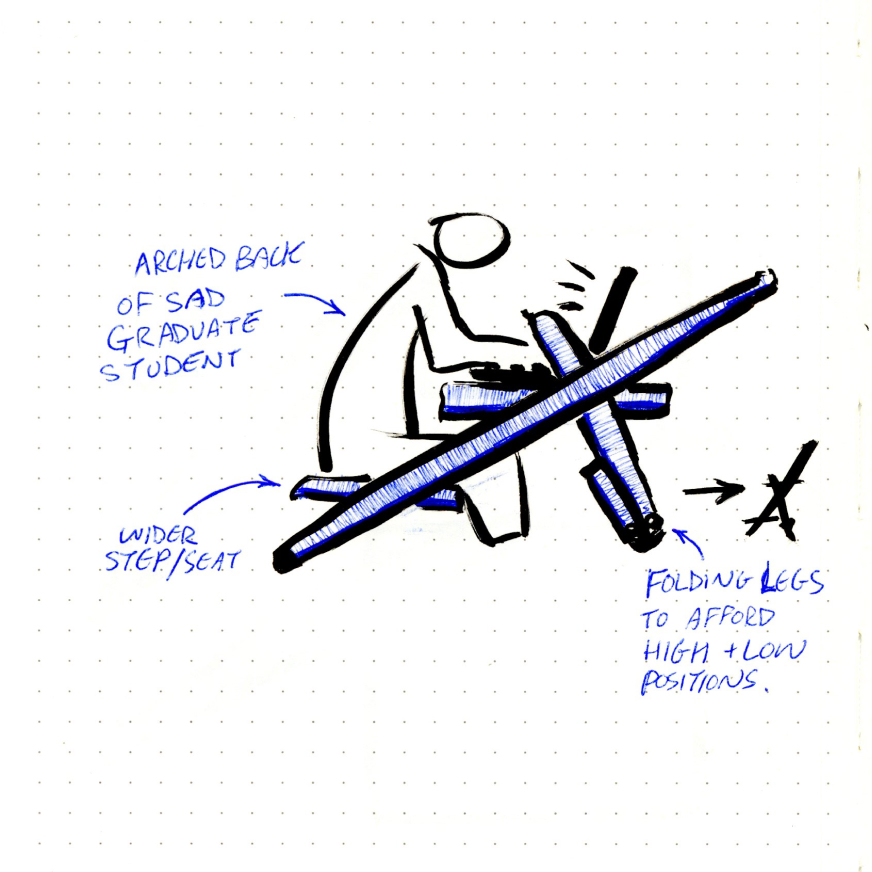 ARCHED BACK
OF SAD
GRADUATE
STUDENT
WIDER
STEP/SEAT
FOLDING LEGS
TO AFFORD
HIGH + LOW
POSITIONS.